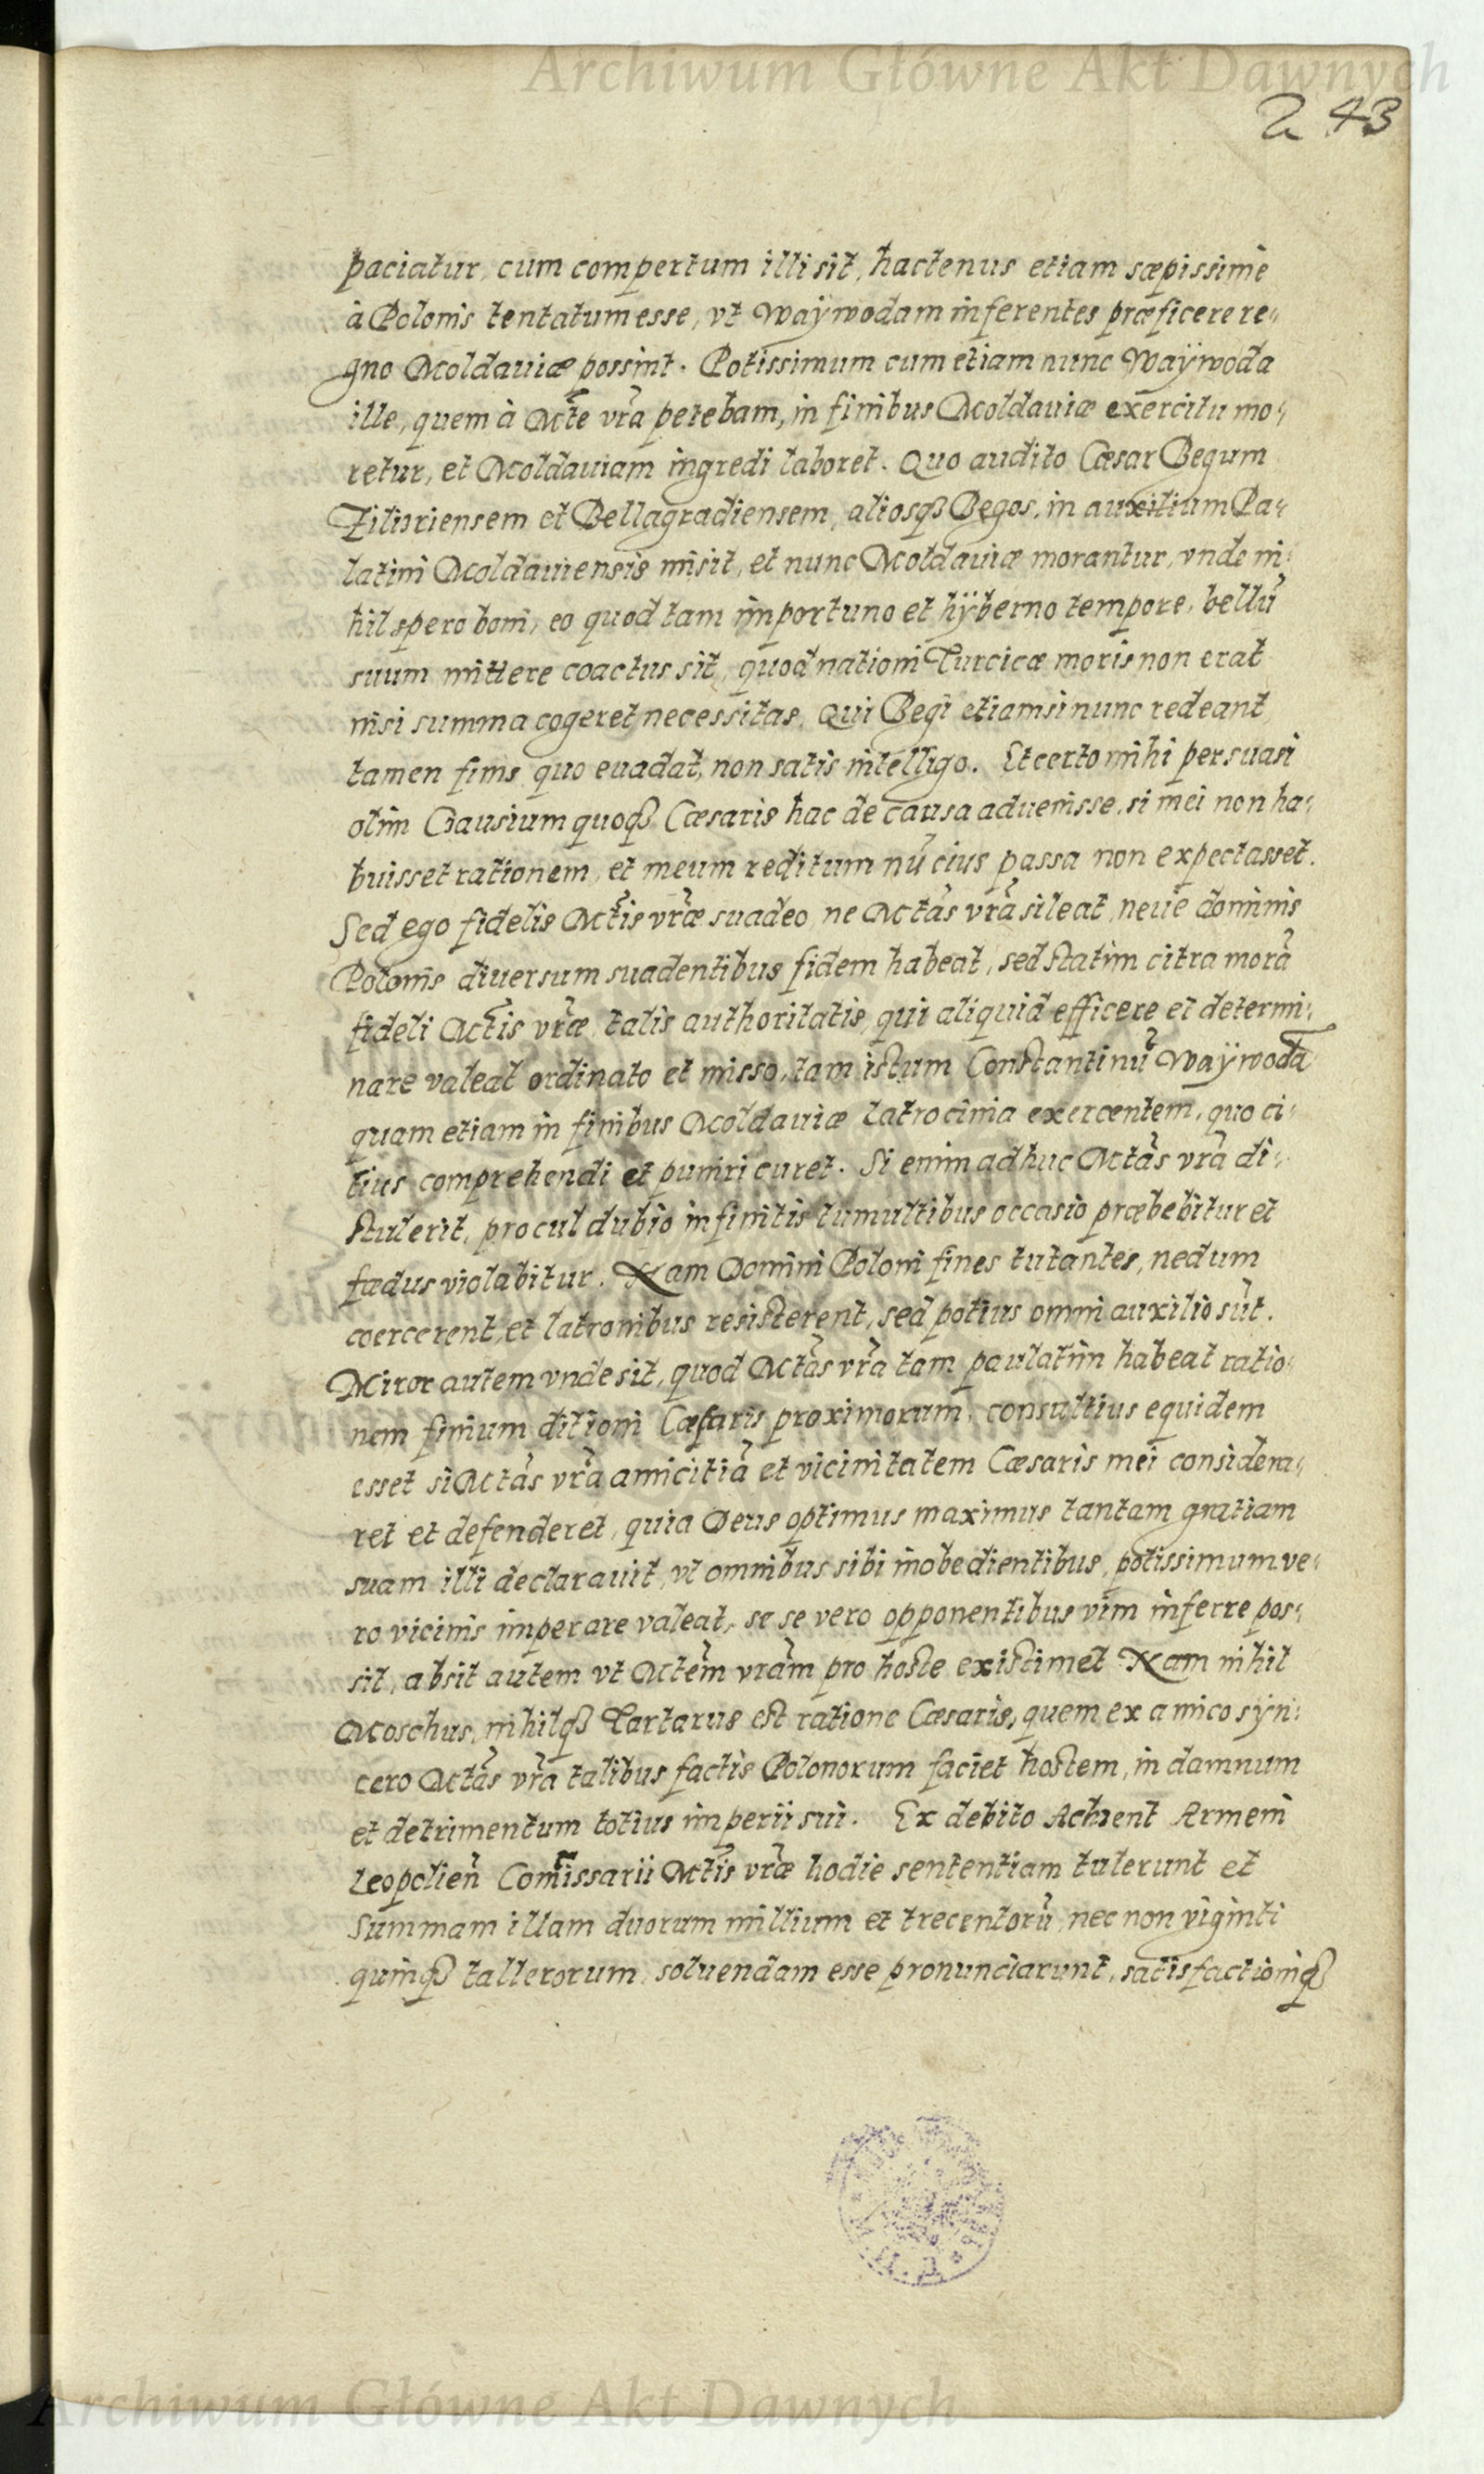 Archiwum Główne Akt Dawnych
243
paciatur, cum compertum illi sit, hactenus etiam sæpissime
à Polonis tentatum esse, vt Waÿwodam inferentes præficere re⸗
gno Moldauiæ possint. Potissimum cum etiam nunc Waÿwoda
ille, quem à Mte vra petebam, in finibus Moldauiæ exercitu mo⸗
retur, et Moldauiam ingredi laboret. Quo audito Cæsar Begum
et Bellagradiensem, aliosqȝ Begos, in auxilium Pa⸗
latini Moldauiensis misit, et nunc Moldauiæ morantur, vnde ni⸗
hil spero boni, eo quod tam importuno et hÿberno tempore, bellũ
suum mittere coactus sit, quod nationi Turcicæ moris non erat
nisi summa cogeret necessitas. Qui Begi etiamsi nunc redeant
tamen finis quo euadat, non satis intelligo. Et certo mihi persuasi
olim Ciausium quoqȝ Cæsaris hac de causa aduenisse, si mei non ha⸗
buisset rationem, et meum reditum passa non expectasset.
Sed ego fidelis Mtis vræ suadeo, ne Mtas vra sileat, neue dominis
Polonis diuersum suadentibus fidem habeat, sed statim citra morã
fideli Mtis vræ talis authoritatis, qui aliquid efficere et determi⸗
nare valeat ordinato et misso, tam istum Constantinũ Waÿwodã
quam etiam in finibus Moldauiæ latrocinia exercentem, quo ci⸗
tius comprehendi et puniri curet. Si enim adhuc Mtas vra di⸗
stulerit, procul dubio infinitis tumultibus occasio præbebitur et
fœdus violabitur. Nam Domini Poloni fines tutantes, nedum
coercerent, et latronibus resisterent, sed potius omni auxilio sũt.
Miror autem vnde sit, quod Mtas vra tam paulatim habeat ratio⸗
nem finium ditioni Cæsaris proximorum, consultius equidem
esset si Mtas vra amicitiã et vicinitatem Cæsaris mei considera⸗
ret et defenderet, quia Deus optimus maximus tantam gratiam
suam illi declarauit, vt omnibus sibi inobedientibus, potissimum ve⸗
ro vicinis imperare valeat, se se vero opponentibus vim inferre pos⸗
sit, absit autem vt Mtem vram pro hoste existimet Nam nihil
Moschus, nihilqȝ Tartarus est ratione Cæsaris, quem ex amico syn⸗
cero Mtas vra talibus factis Polonorum faciet hostem, in damnum
et detrimentum totius imperii sui. Ex debito Achient Armeni
Leopolien̄ Com̄issarii Mtis vræ hodie sententiam tulerunt et
Summam illam duorum millium et trecentorũ, nec non viginti
quinqȝ tallerorum soluendam esse pronunciarunt, satisfactioniqȝ
Archiwum Główne Akt Dawnych